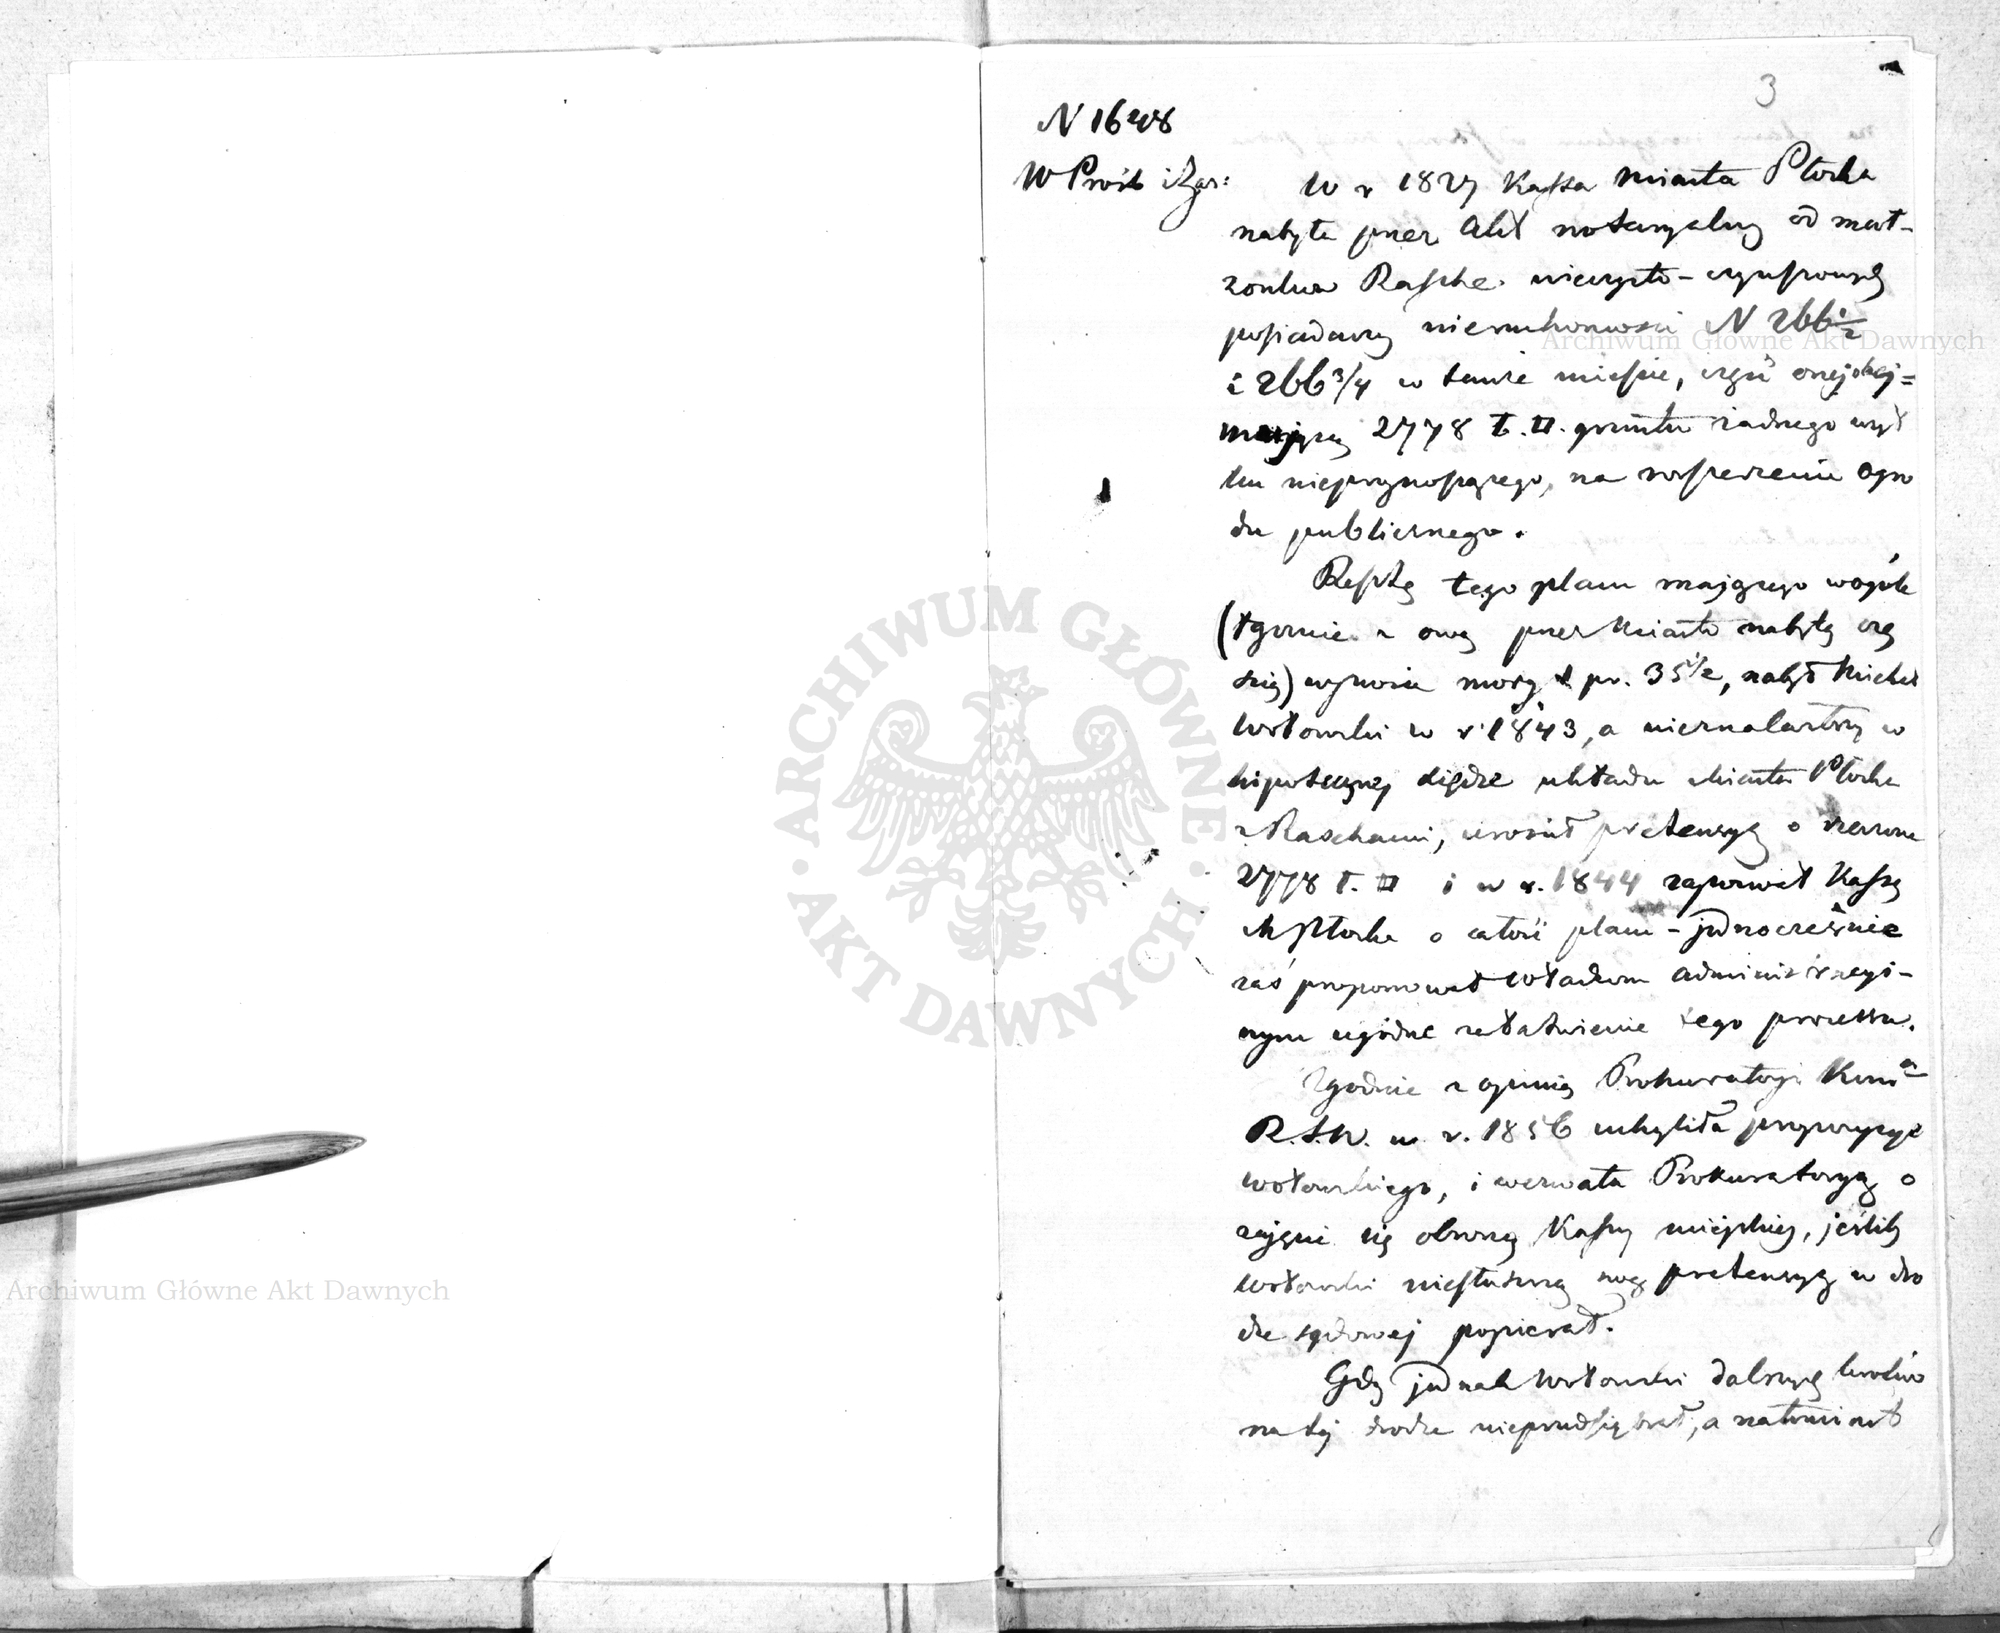 3
N 1648
W Prośb i Zaż:
W r 1827 Kassa miasta Płocka
nabyła przez Akt notaryalny od mał-
żonków Rasche wieczysto-czynszowych
posiadaczy nieruchomości N 266 1/2
i 266 3/4 w temże mieście, część onej obej=
mującą 2778 ł. □. gruntu żadnego użyt
ku nieprzynoszącego, na rozszerzenie ogro
du publicznego.
Resztę tego placu mającego wogóle
(łącznie z ową przez Miasto nabytą czę
ścią) wynosić morg pr. 35 1/2, nabył Michał
Wołowski w r 1843, a nieznalazłszy w
hipotecznej księdze układu Miasta Płocka
z Raschami, urościł pretensyą o rzeczone
2778 ł. □ i w r. 1844 zapozwał Kassę
M Płocka o całość placu - jednocześnie
zaś proponował Władzom administracyj-
nym ugodne załatwienie tego processu.
Zgodnie z opinią Prokuratoryi Koma
R.S.W. w r. 1856 uchyliła propozycye
Wołowskiego, i wezwała Prokuratoryą o
zajęcie się obroną Kassy miejskiej, jeśliby
Wołowski niesłuszną swą pretensyą w dro
dze sądowej popierał.
Gdy jednak Wołowski dalszych kroków
na tej drodze nieprzedsiębrał, a natomiast
Archiwum Główne Akt Dawnych
Archiwum Główne Akt Dawnych
ARCHIWUM GŁÓWNE AKT DAWNYCH